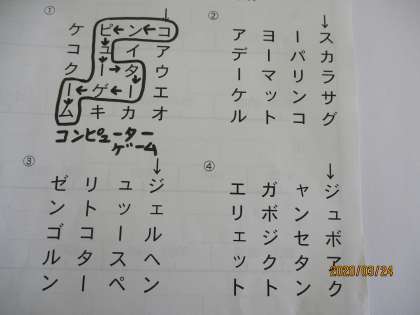 ①
コアウエオ
ンイターカ
ピューゲキ
ケコクーム
コンピューター
ゲーム
②
スカラサグ
ーパリンコ
ヨーマット
アデーケル
③
ジェルヘン
ュッースペ
リトコター
ゼンゴルン
④
ジュボアク
ャンセタン
ガボジクト
エリェット
2020/03/24